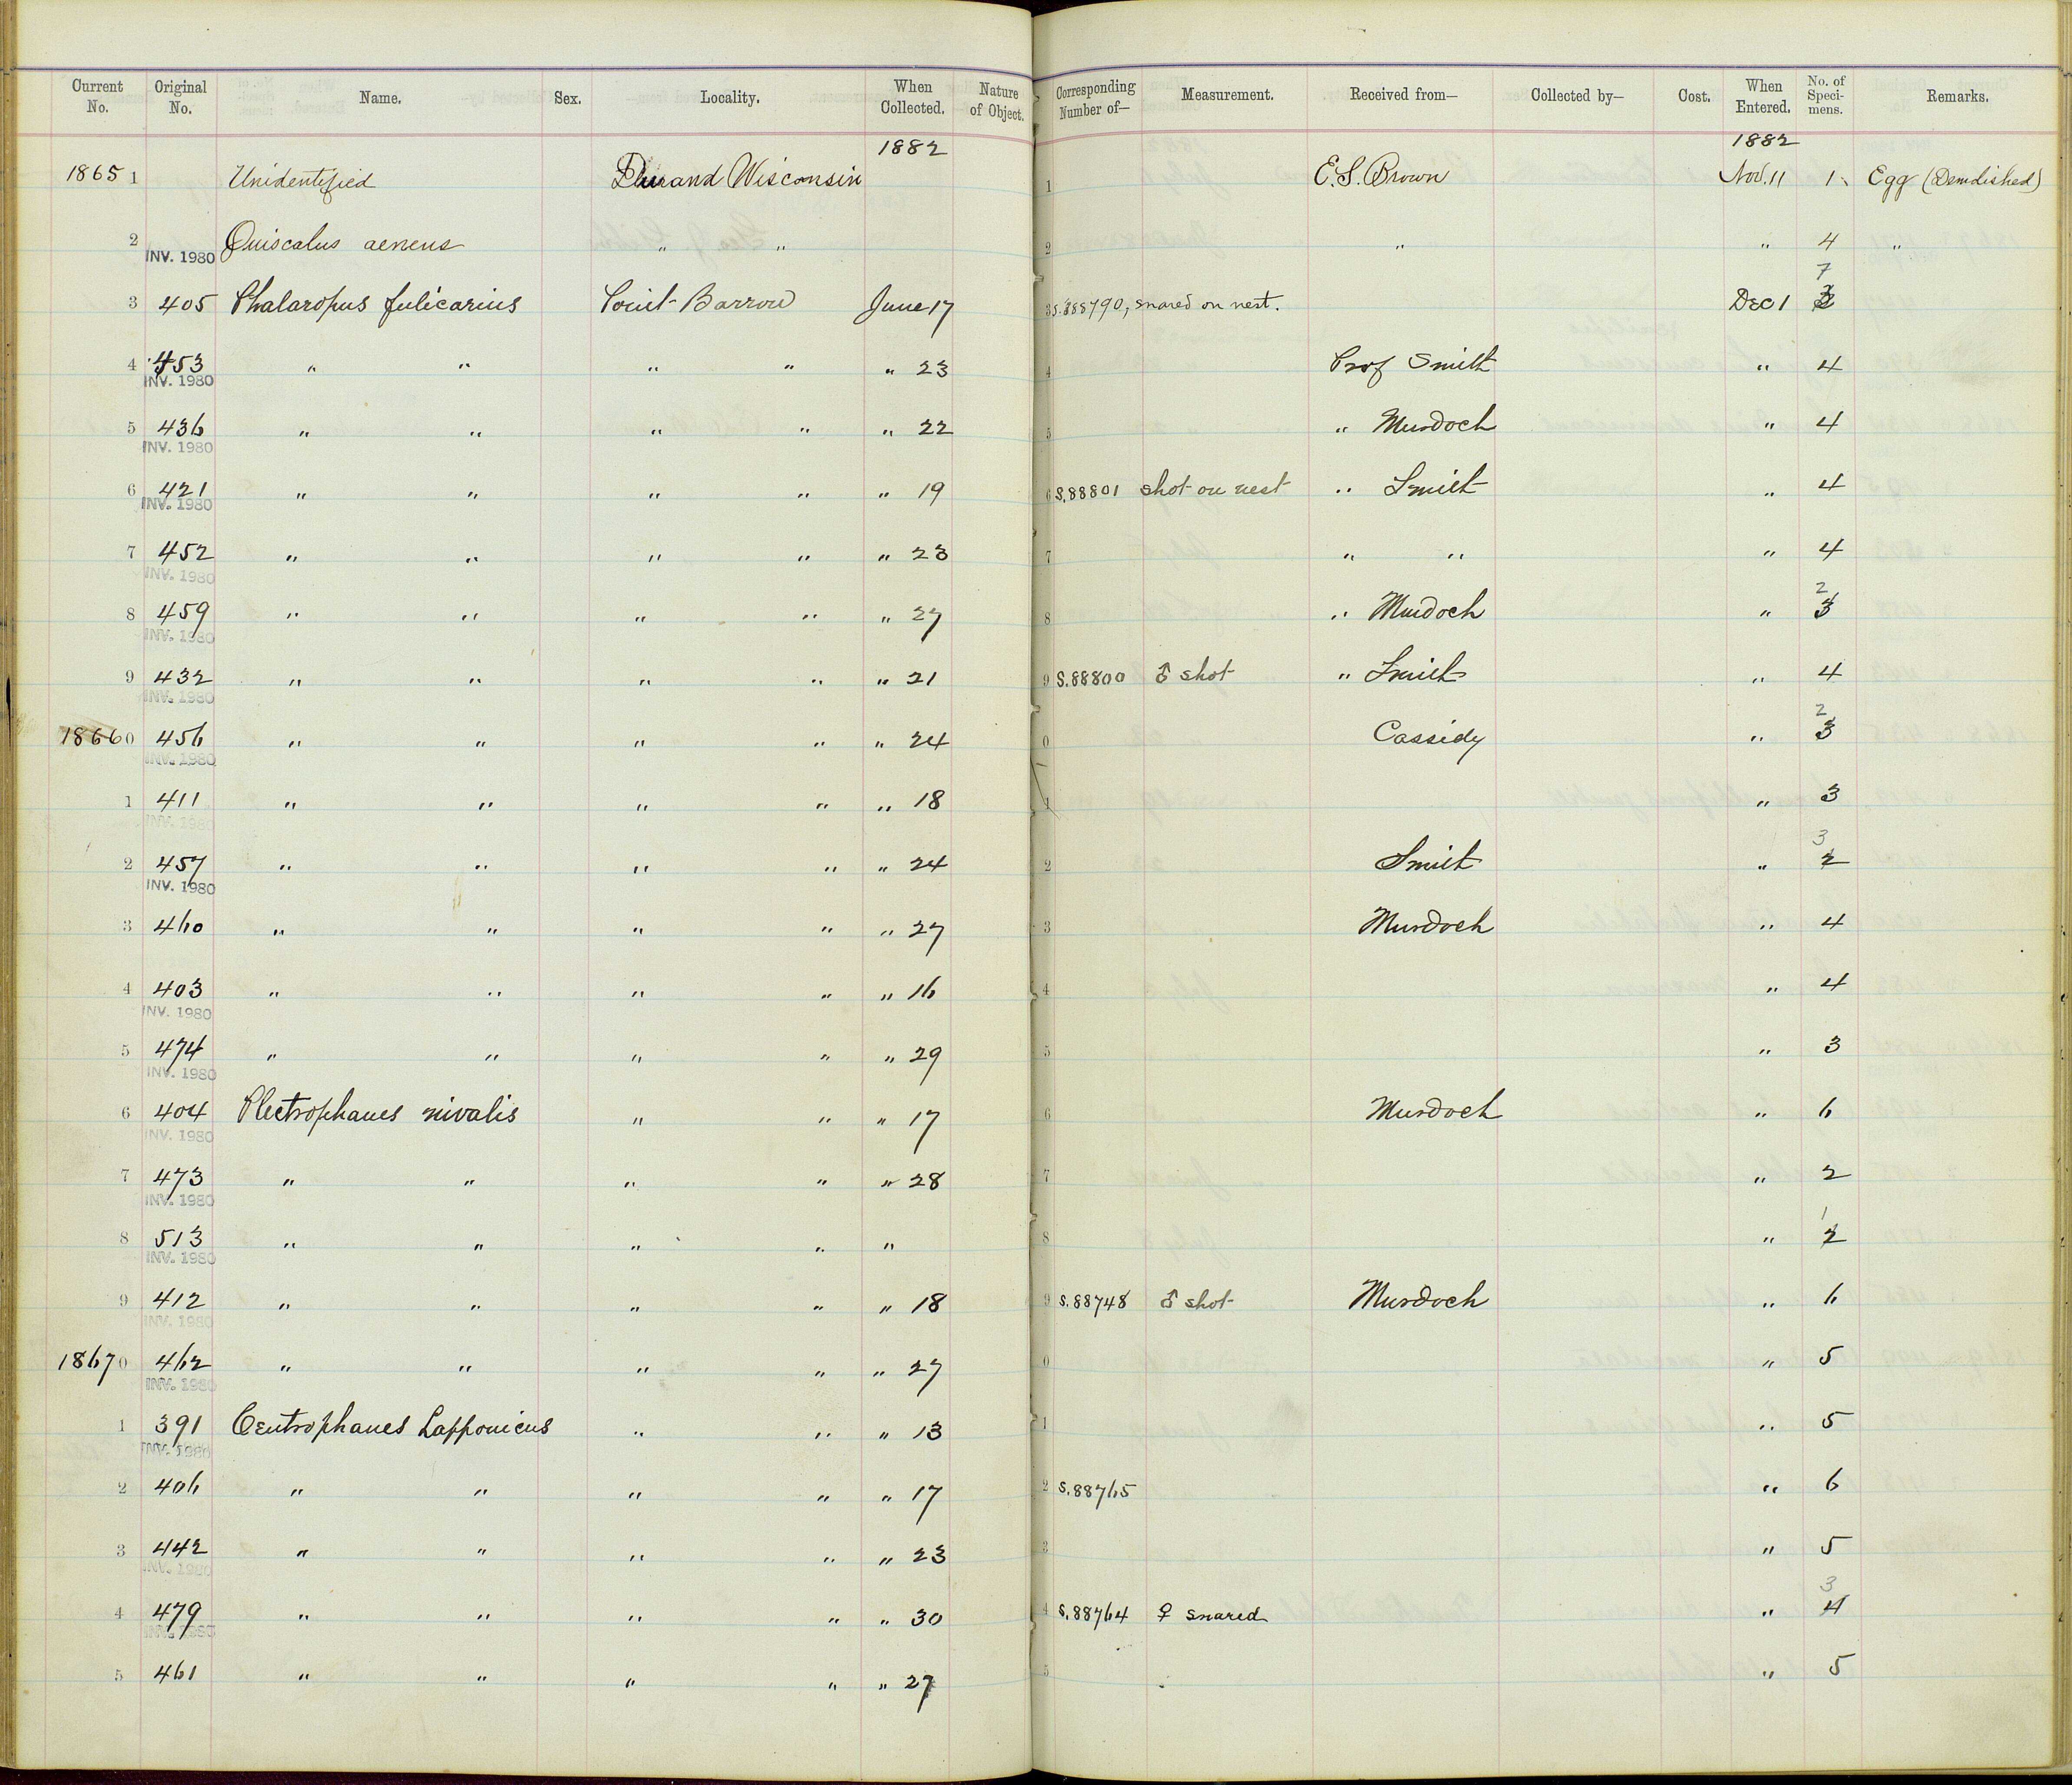 Current No. Original No. Name. Sex. Locality. When Collected. Nature of Object. Corresponding Number of— Measurement. Received from— Collected by— Cost. When Entered. No. of Specimens. Remarks.
1882 1882
1865 1 Unidentified Durand Wisconsin 1 E.S. Brown Nov. 11 1 Egg (Demolished)
2 INV. 1980 Quiscalus aeneus " " 2 " " 4 "
3 405 Phalaropus fulicarius Point Barrow June 17 3 S.88790, snared on nest. Dec 1 7
4 453 INV. 1980 " " " " " 23 4 Prof Smith " 4
5 436 INV. 1980 " " " " " 22 5 " Murdoch " 4
6 421 INV. 1980 " " " " " 19 6 S.88801 shot on nest " Smith " 4
7 452 INV. 1980 " " " " " 23 7 " " " 4
8 459 INV. 1980 " " " " " 27 8 " Murdoch " 2 3
9 432 INV. 1980 " " " " " 21 9 S.88800 ♂ shot " Smith " 4
1866 0 456 INV. 1980 " " " " " 24 0 Cassidy " 2 3
1 411 INV. 1980 " " " " " 18 1 " 3
2 457 INV. 1980 " " " " " 24 2 Smith " 3 2
3 460 " " " " " 27 3 Murdoch " 4
4 403 INV. 1980 " " " " " 16 4 " 4
5 474 INV. 1980 " " " " " 29 5 " 3
6 404 INV. 1980 Plectrophanes nivalis " " " 17 6 Murdoch " 6
7 473 INV. 1980 " " " " " 28 7 " 2
8 513 INV. 1980 " " " " " 8 " 1 2
9 412 INV. 1980 " " " " " 18 9 S.88748 ♂ shot Murdoch " 6
1867 0 462 INV. 1980 " " " " " 27 0 " 5
1 391 INV. 1980 Centrophanes Lapponicus " " " 13 1 " 5
2 406 " " " " " 17 2 S.88765 " 6
3 442 INV. 1980 " " " " " 23 3 " 5
4 479 INV. 1980 " " " " " 30 4 S.88764 ♀ snared " 3 4
5 461 " " " " " 27 5 " 5